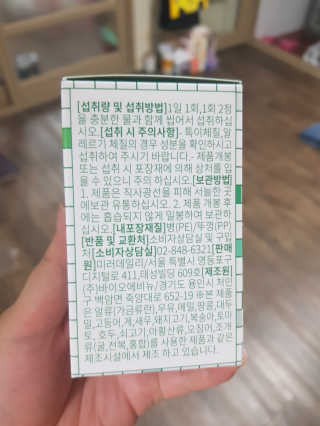 [섭취량 및 섭취방법]1일 1회,1회 2정
을 충분한 물과 함께 씹어서 섭취하십
시오.[섭취 시 주의사항]- 특이체질,알
레르기 체질의 경우 성분을 확인하시고
섭취하여 주시기 바랍니다.- 제품개봉
또는 섭취 시 포장재에 의해 상처를 입
을 수 있으니 주의 하십시오.[보관방법]
1. 제품은 직사광선을 피해 서늘한 곳
에보관 유통하십시오. 2. 제품 개봉 후
에는 흡습되지 않게 밀봉하여 보관하
십시오.[내포장재질]병(PE)/뚜껑(PP)
[반품 및 교환처]소비자상담실 및 구입
처[소비자상담실]02-848-6321[판매
원]미러데일리/서울 특별시 영등포구
디지털로 411,태성빌딩 609호[제조원]
(주)바이오에비뉴/경기도 용인시 처인
구 백암면 죽양대로 652-19 ※본 제품
은 알류(가금류란),우유,메밀,땅콩,대두,
밀,고등어,게,새우,돼지고기,복숭아,토마
토, 호두,쇠고기,아황산류,오징어,조개
류(굴,전복,홍합)를 사용한 제품과 같은
제조시설에서 제조 하고 있습니다.